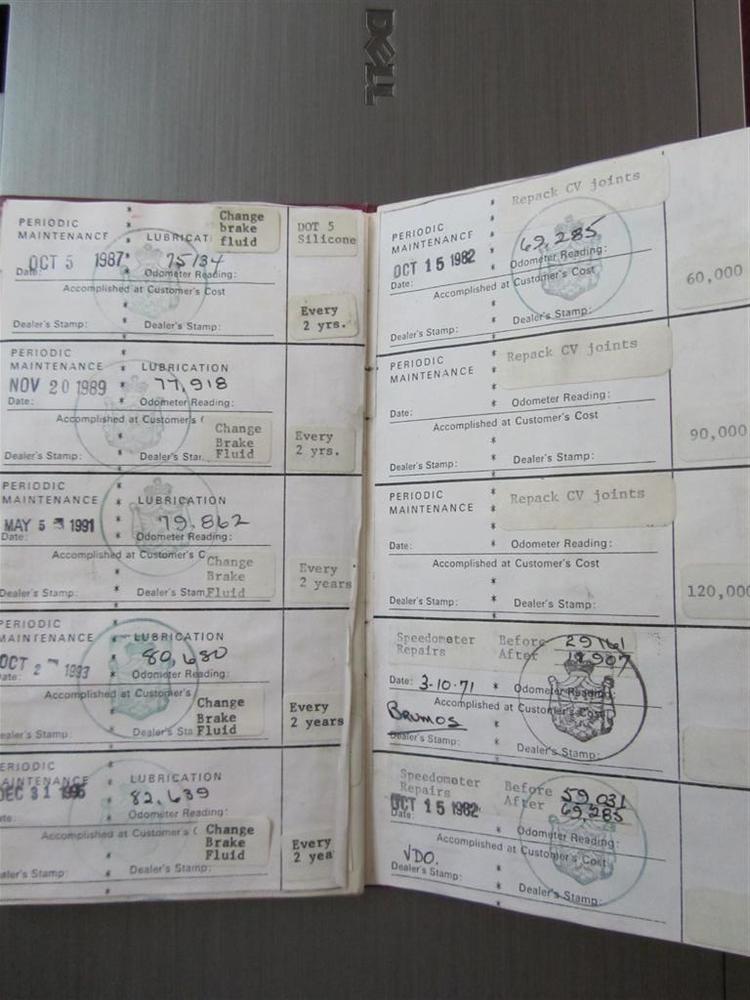 DELL
PERIODIC
MAINTENANCE
LUBRICATI
Change
brake
fluid
DOT 5
Silicone
OCT 5 1987
75134
Date:
Odometer Reading:
Accomplished at Customer's Cost
Every
2 yrs.
Dealer's Stamp: Dealer's Stamp:
PERIODIC
MAINTENANCE LUBRICATION
NOV 20 1989 77,918
Date: Odometer Reading:
Accomplished at Customer's
Change
Brake
Fluid
Every
2 yrs.
Dealer's Stamp: Dealer's Star
PERIODIC
MAINTENANCE LUBRICATION
MAY 5 1991 79,862
Date: Odometer Reading:
Accomplished at Customer's C
Change
Brake
Fluid
Every
2 years
Dealer's Stamp: Dealer's Stam
PERIODIC
MAINTENANCE LUBRICATION
OCT 2 1993 80,680
ate: Odometer Reading:
Accomplished at Customer's
Change
Brake
Fluid
Every
2 years
ealer's Stamp: Dealer's Sta
ERIODIC
AINTENANCE LUBRICATION
DEC 31 1995 82,639
te: Odometer Reading:
Accomplished at Customer's C
Change
Brake
Fluid
Every
2 yea
aler's Stamp: Dealer's Stamp:
PERIODIC
MAINTENANCE
Repack CV joints
OCT 15 1982 69,285
Date: Odometer Reading:
Accomplished at Customer's Cost
60,000
Dealer's Stamp: Dealer's Stamp:
PERIODIC
MAINTENANCE
Repack CV joints
Date: Odometer Reading:
Accomplished at Customer's Cost
90,000
Dealer's Stamp: Dealer's Stamp:
PERIODIC
MAINTENANCE
Repack CV joints
Date: Odometer Reading:
Accomplished at Customer's Cost
120,000
Dealer's Stamp: Dealer's Stamp:
Speedometer Before 29161
Repairs After 12907
Date: 3-10-71 Odometer Reading:
Accomplished at Customer's Cost
BRUMOS
Dealer's Stamp: Dealer's Stamp:
Speedometer Before 59,031
Repairs After 69,285
OCT 15 1982
Date: Odometer Reading:
Accomplished at Customer's Cost
VDO.
Dealer's Stamp: Dealer's Stamp: